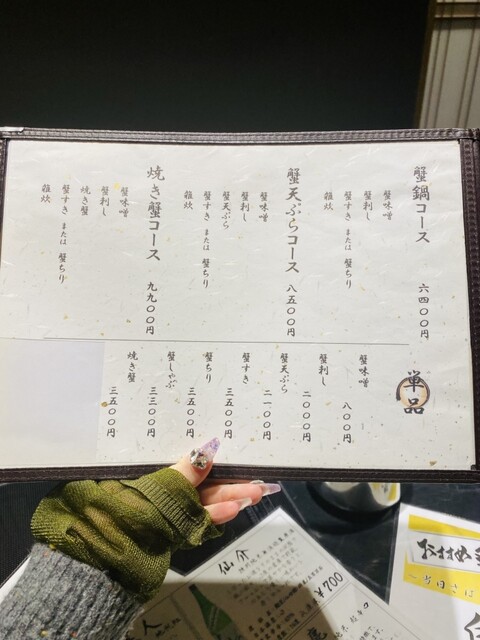 蟹鍋コース 六四〇〇円
蟹味噌
蟹刺し
蟹すき または 蟹ちり
雑炊
蟹天ぷらコース 八五〇〇円
蟹味噌
蟹刺し
蟹天ぷら
蟹すき または 蟹ちり
雑炊
焼き蟹コース 九九〇〇円
蟹味噌
蟹刺し
焼き蟹
蟹すき または 蟹ちり
雑炊
単品
蟹味噌 八〇〇円
蟹刺し 二〇〇〇円
蟹天ぷら 二一〇〇円
蟹すき 三五〇〇円
蟹ちり 三五〇〇円
蟹しゃぶ 三三〇〇円
焼き蟹 三五〇〇円
仙介
¥700
おすすめ